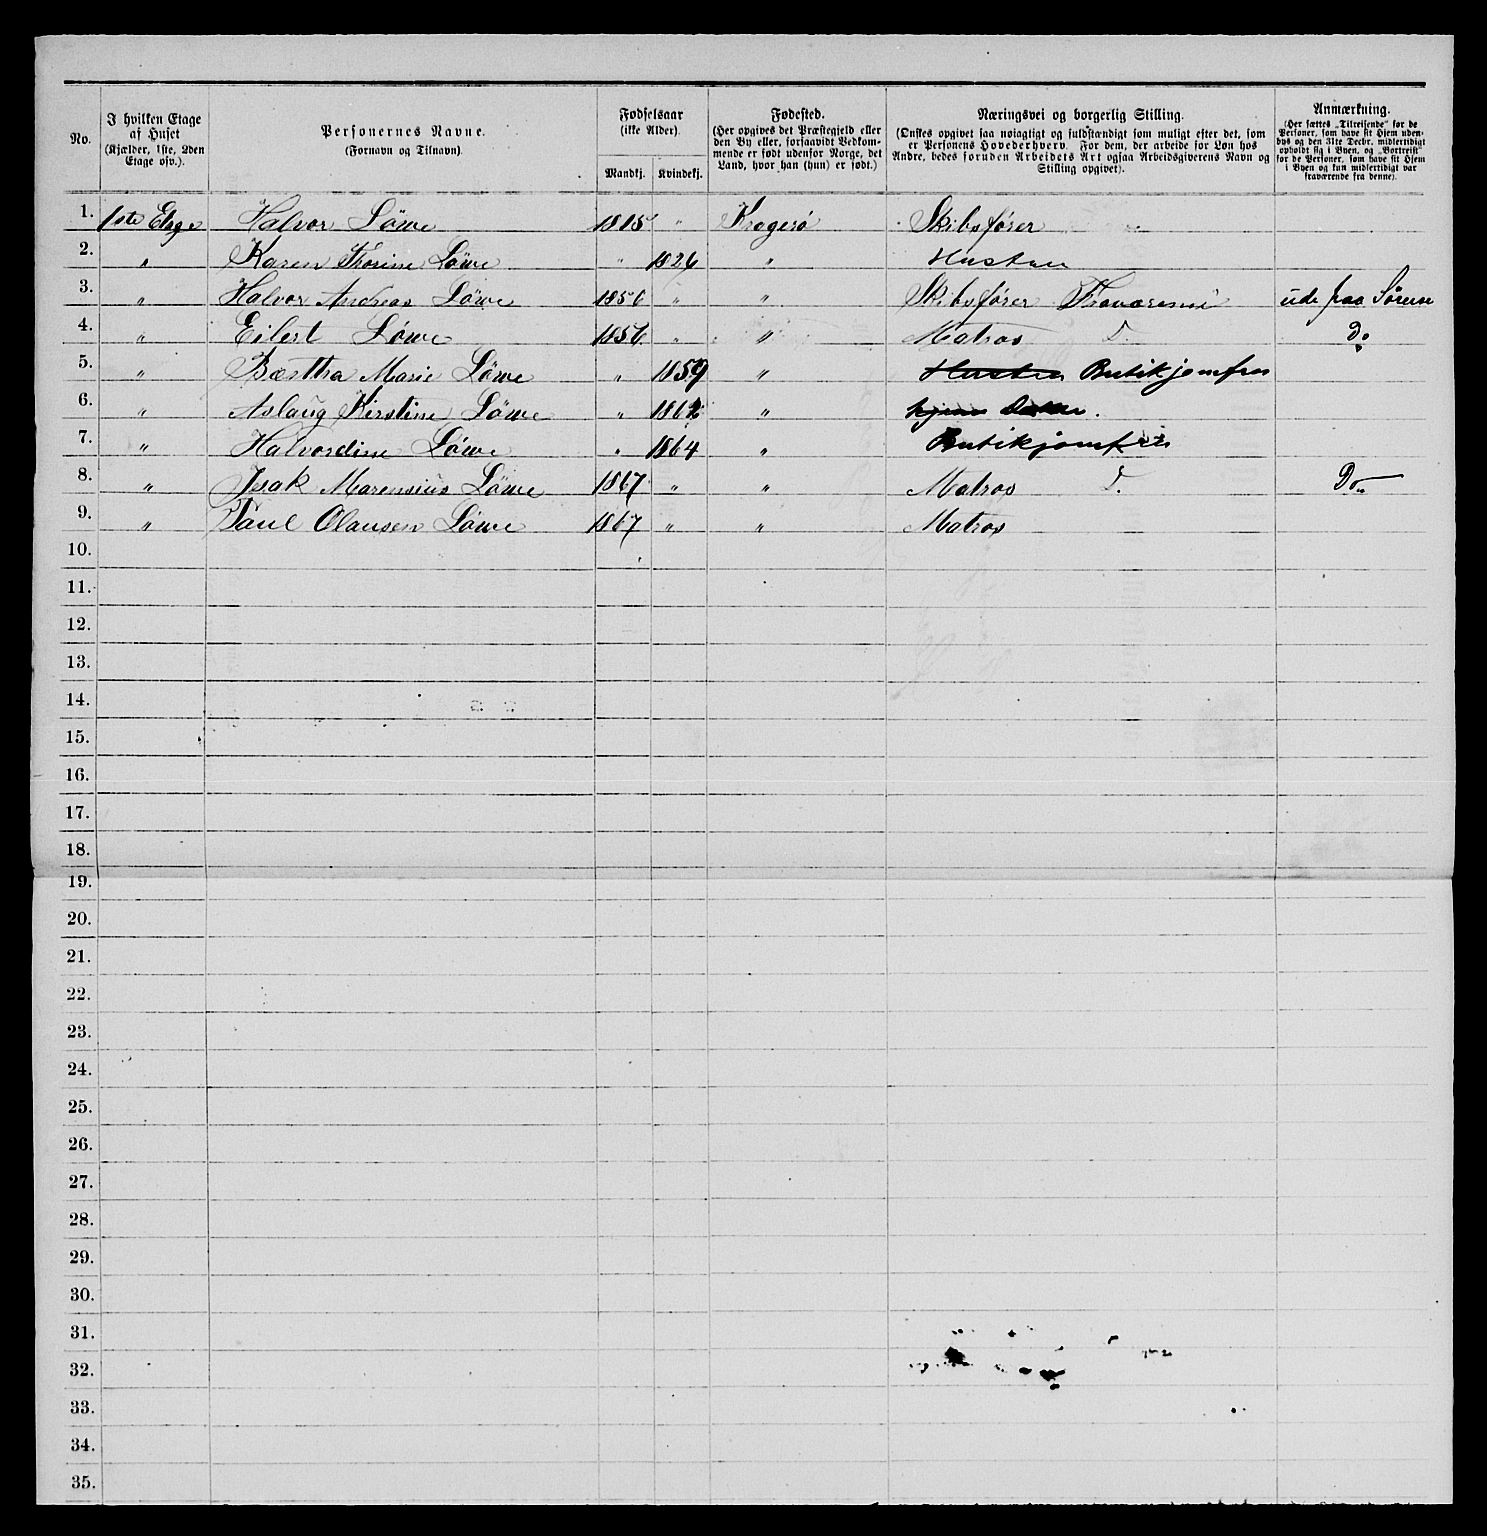 No.
I hvilken Etage af Huset (Kjælder, 1ste, 2den Etage osv.).
Personernes Navne. (Fornavn og Tilnavn).
Fødselsaar (ikke Alder). Mandkj. Kvindekj.
Fødested. (Her opgives det Præstegjeld eller den By eller, forsaavidt Vedkommende er født udenfor Norge, det Land, hvor han (hun) er født.)
Næringsvei og borgerlig Stilling. (Ønskes opgivet saa nøiagtigt og fuldstændigt som muligt efter det, som er Personens Hovederhverv. For dem, der arbeide for Løn hos Andre, bedes foruden Arbeidets Art ogsaa Arbeidsgiverens Navn og Stilling opgivet).
Anmærkning. (Her sættes „Tilreisende” for de Personer, som have sit Hjem udenbys og den 31te Decbr. midlertidigt opholdt sig i Byen, og „Bortreist” for de Personer, som have sit Hjem i Byen og kun midlertidigt var fraværende fra denne).
1. 1ste Etage Halvor Löwe 1815 " Kragerø Skibsfører
2. " Karen Thorine Löwe " 1826 " Hustru
3. " Halvor Andreas Löwe 1850 " " Skibsfører Fraværende ude paa Søreise
4. " Eilert Löwe 1856 " " Matros D. Do
5. " Bærtha Marie Löwe " 1859 " Hustru Butikjomfru
6. " Aslaug Kirstine Löwe " 1862 " hjem
7. " Halvordine Löwe " 1864 " Butikjomfru
8. " Isak Marensius Löwe 1867 " " Matros D. Do
9. " Paul Olausen Löwe 1867 " " Matros
10.
11.
12.
13.
14.
15.
16.
17.
18.
19.
20.
21.
22.
23.
24.
25.
26.
27.
28.
29.
30.
31.
32.
33.
34.
35.